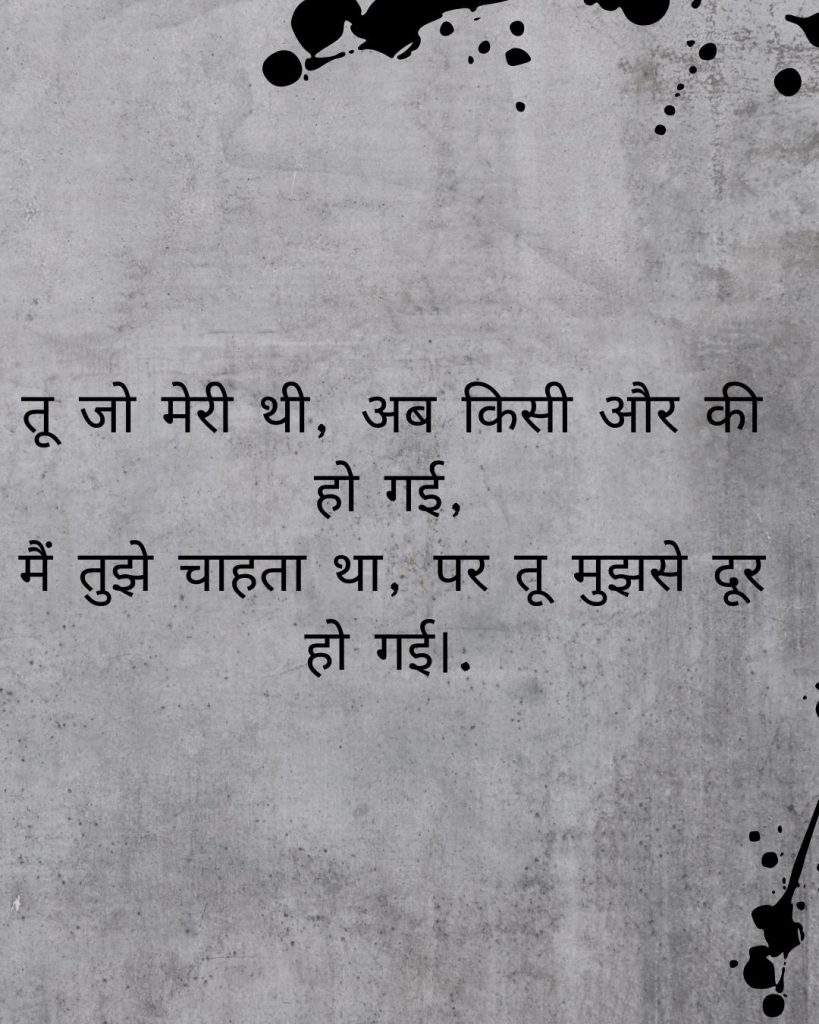 तू जो मेरी थी, अब किसी और की
हो गई,
मैं तुझे चाहता था, पर तू मुझसे दूर
हो गई।.